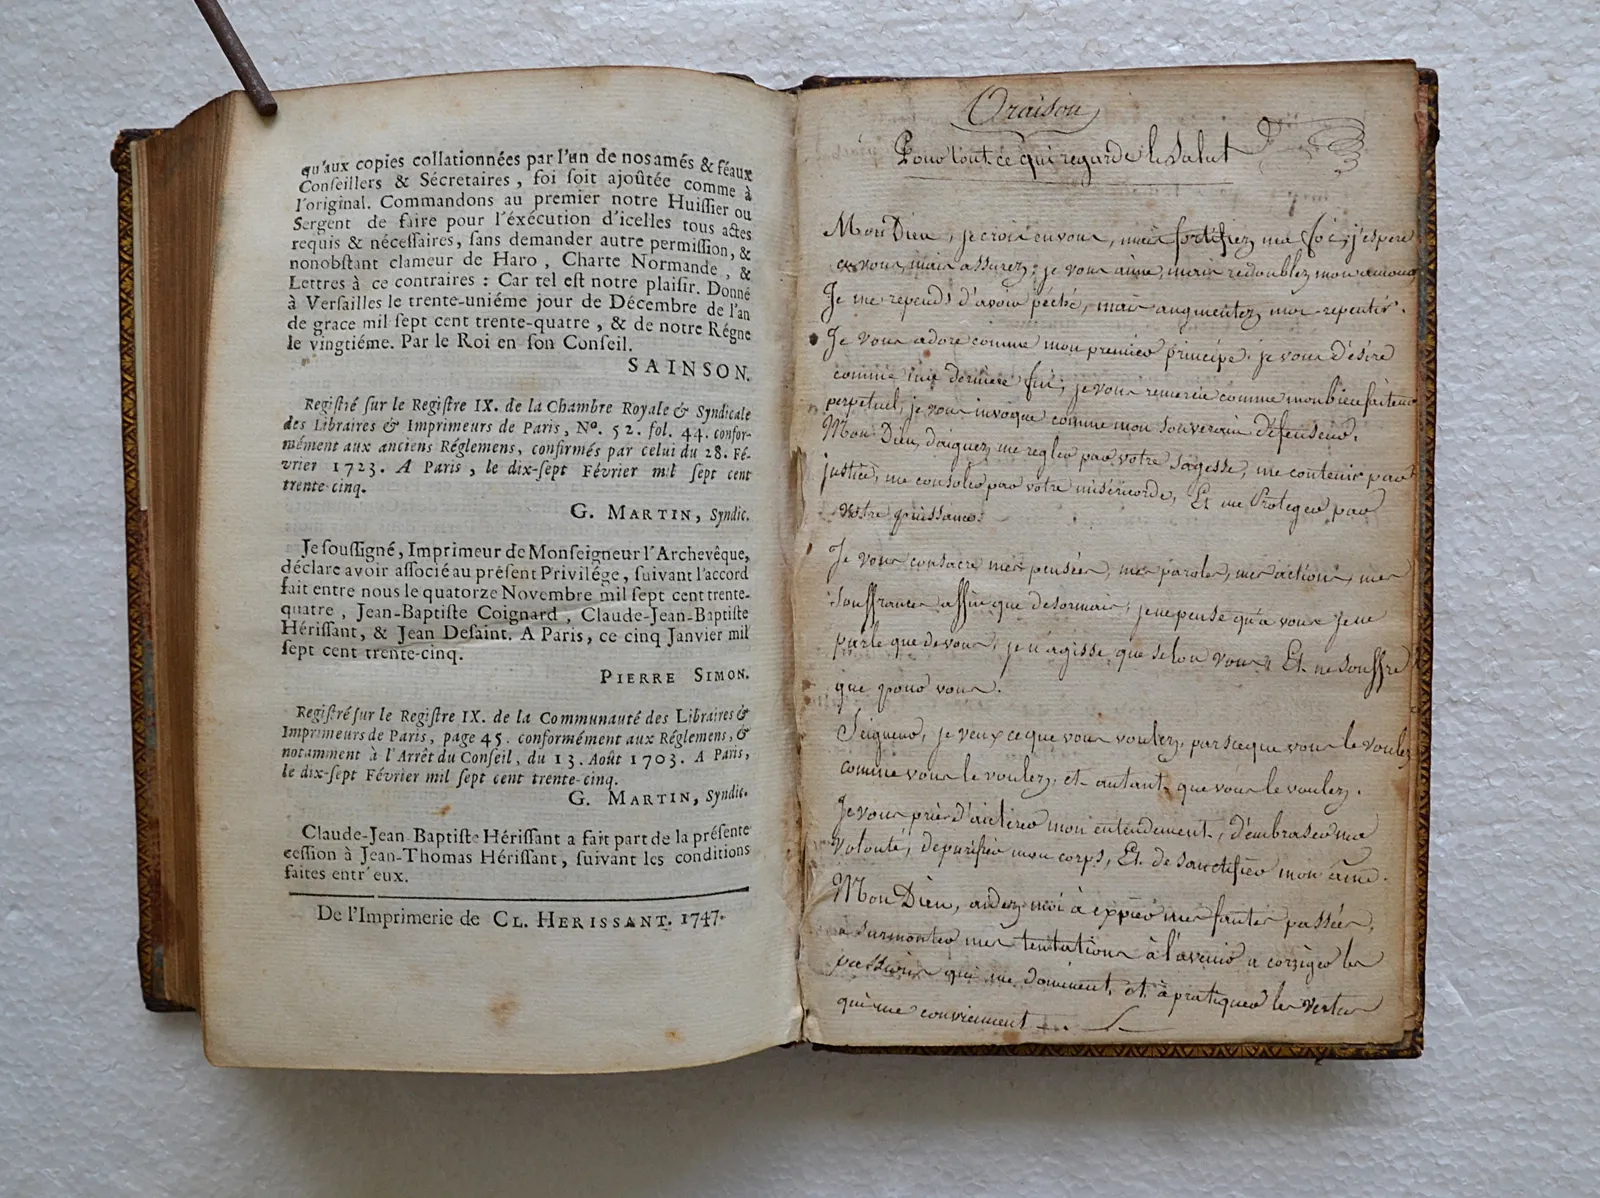 qu'aux copies collationnées par l'un de nos amés & féaux
Conseillers & Sécretaires, foi soit ajoûtée comme à
l'original. Commandons au premier notre Huissier ou
Sergent de faire pour l'éxécution d'icelles tous actes
requis & nécessaires, sans demander autre permission, &
nonobstant clameur de Haro, Charte Normande, &
Lettres à ce contraires : Car tel est notre plaisir. Donné
à Versailles le trente-uniéme jour de Décembre de l'an
de grace mil sept cent trente-quatre, & de notre Régne
le vingtiéme. Par le Roi en son Conseil.
SAINSON.
Registré sur le Registre IX. de la Chambre Royale & Syndicale
des Libraires & Imprimeurs de Paris, Nº. 52. fol. 44. confor-
mément aux anciens Réglemens, confirmés par celui du 28. Fé-
vrier 1723. A Paris, le dix-sept Février mil sept cent
trente-cinq.
G. MARTIN, Syndic.
Je soussigné, Imprimeur de Monseigneur l'Archevêque,
déclare avoir associé au présent Privilége, suivant l'accord
fait entre nous le quatorze Novembre mil sept cent trente-
quatre, Jean-Baptiste Coignard, Claude-Jean-Baptiste
Hérissant, & Jean Desaint. A Paris, ce cinq Janvier mil
sept cent trente-cinq.
PIERRE SIMON.
Registré sur le Registre IX. de la Communauté des Libraires &
Imprimeurs de Paris, page 45. conformément aux Réglemens, &
notamment à l'Arrêt du Conseil, du 13. Août 1703. A Paris,
le dix-sept Février mil sept cent trente-cinq.
G. MARTIN, Syndic.
Claude-Jean-Baptiste Hérissant a fait part de la présente
cession à Jean-Thomas Hérissant, suivant les conditions
faites entr'eux.
De l'Imprimerie de CL. HERISSANT. 1747.
Oraison
Pour tout ce qui regarde le Salut
Mon Dieu, je crois en vous, mais fortifiez ma foi, j'espere
en vous, mais assurez ; je vous aime, mais redoublez mon amour
Je me repends d'avoir péché, mais augmentez mon repentir.
Je vous adore comme mon premier principe. je vous désire
comme ma derniere fin, je vous remercie comme mon bienfaiteur
perpetuel, je vous invoque comme mon souverain défenseur.
Mon Dieu, daignez me regler par votre sagesse, me contenir par
justice, me consoler par votre miséricorde, Et me Proteger par
votre puissance.
Je vous consacre mes pensées, mes paroles, mes actions, mes
souffrances affin que desormais, je ne pense qu'à vous je ne
parle que de vous, je n'agisse que selon vous, Et ne souffre
que pour vous.
Seigneur, je veux ce que vous voulez, parsceque vous le voulez
comme vous le voulez, et autant que vous le voulez.
Je vous prie d'aiclirer mon entendement, d'embraser ma
volonté, de purifier mon corps, Et de sanctifier mon âme.
Mon Dieu, aidez moi à expier mes fautes passées,
à surmonter mes tentations à l'avenir a corriger les
passions qui me dominent, et à pratiquer les vertus
qui me conviennent